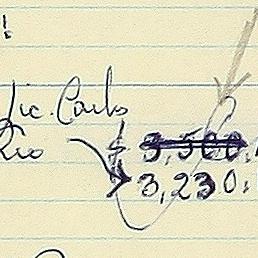 !
Lic. Carlos
Rio $ 3,500.
3,230.